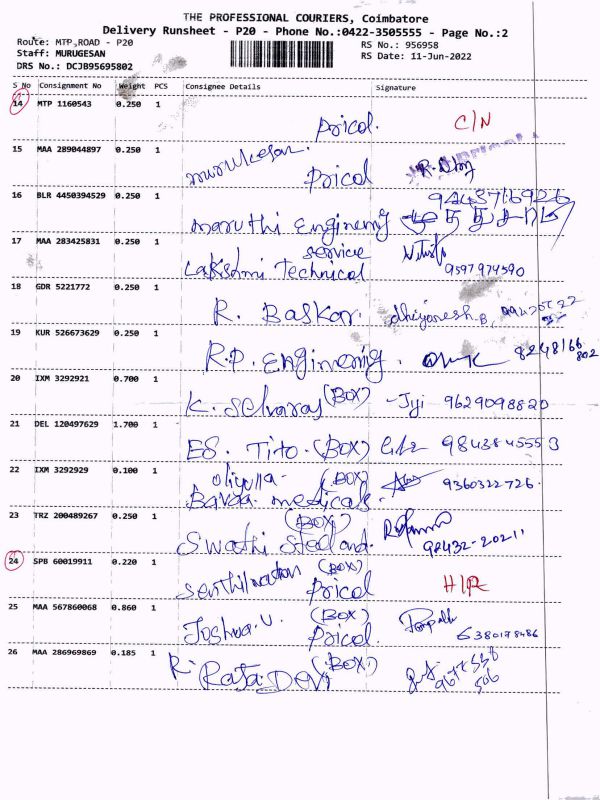 THE PROFESSIONAL COURIERS, Coimbatore
Delivery Runsheet - P20 - Phone No.:0422-3505555 - Page No.:2
Route: MTP ROAD - P20
RS No.: 956958
Staff: MURUGESAN
RS Date: 11-Jun-2022
DRS No.: DCJB95695802
S No Consignment No Weight PCS Consignee Details Signature
14 MTP 1160543 0.250 1
Pricol. C/N
15 MAA 289044897 0.250 1
murukesan.
Pricol R.
16 BLR 4450394529 0.250 1
9443716926
maruthi Enginering
17 MAA 283425831 0.250 1
service
Lakshmi Technical 9597974590
18 GDR 5221772 0.250 1
R. Baskar. dhiyanesh.B,
19 KUR 526673629 0.250 1
R.P. Enginering. 8248166
802
20 IXM 3292921 0.700 1
(BOX)
K. Selvaraj - Jyi 9629098820
21 DEL 120497629 1.700 1
ES. Tito. (BOX) 9843845553
22 IXM 3292929 0.100 1
(BOX)
Bavaa medicals. 9360322726.
23 TRZ 200489267 0.250 1
(BOX)
Swathi Steel and. 98432-20211
24 SPB 60019911 0.220 1
Senthilnathan (BOX)
Pricol
25 MAA 567860068 0.860 1
Joshua.U. (BOX)
Pricol. 6380178486
26 MAA 286969869 0.185 1
R. Raja Devi (BOX)